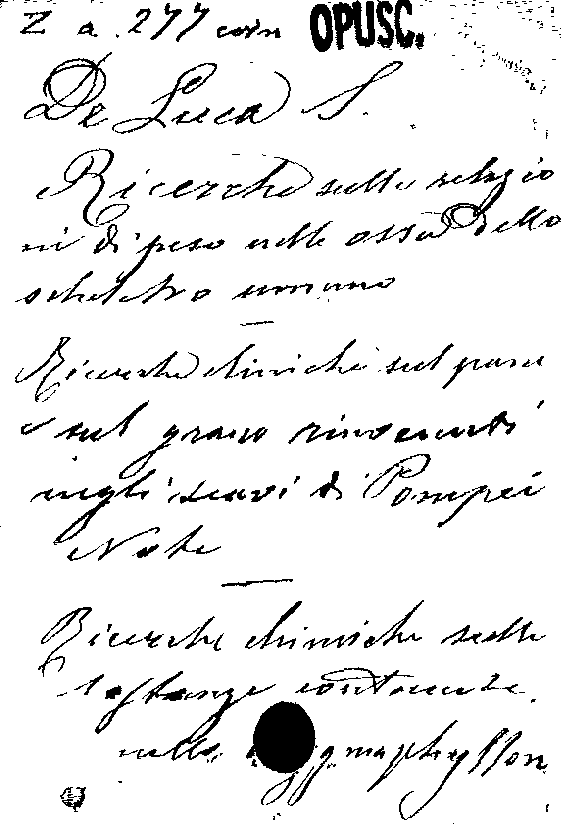 Z a. 277 coin OPUSC.
De Luca S.
Ricerche sulle relazio
ni di peso nelle ossa dello
scheletro umano
Ricerche chimiche sul pane
e sul grano rinvenuti
negli scavi di Pompei
Note
Ricerche chimiche sulle
sostanze contenute
nella